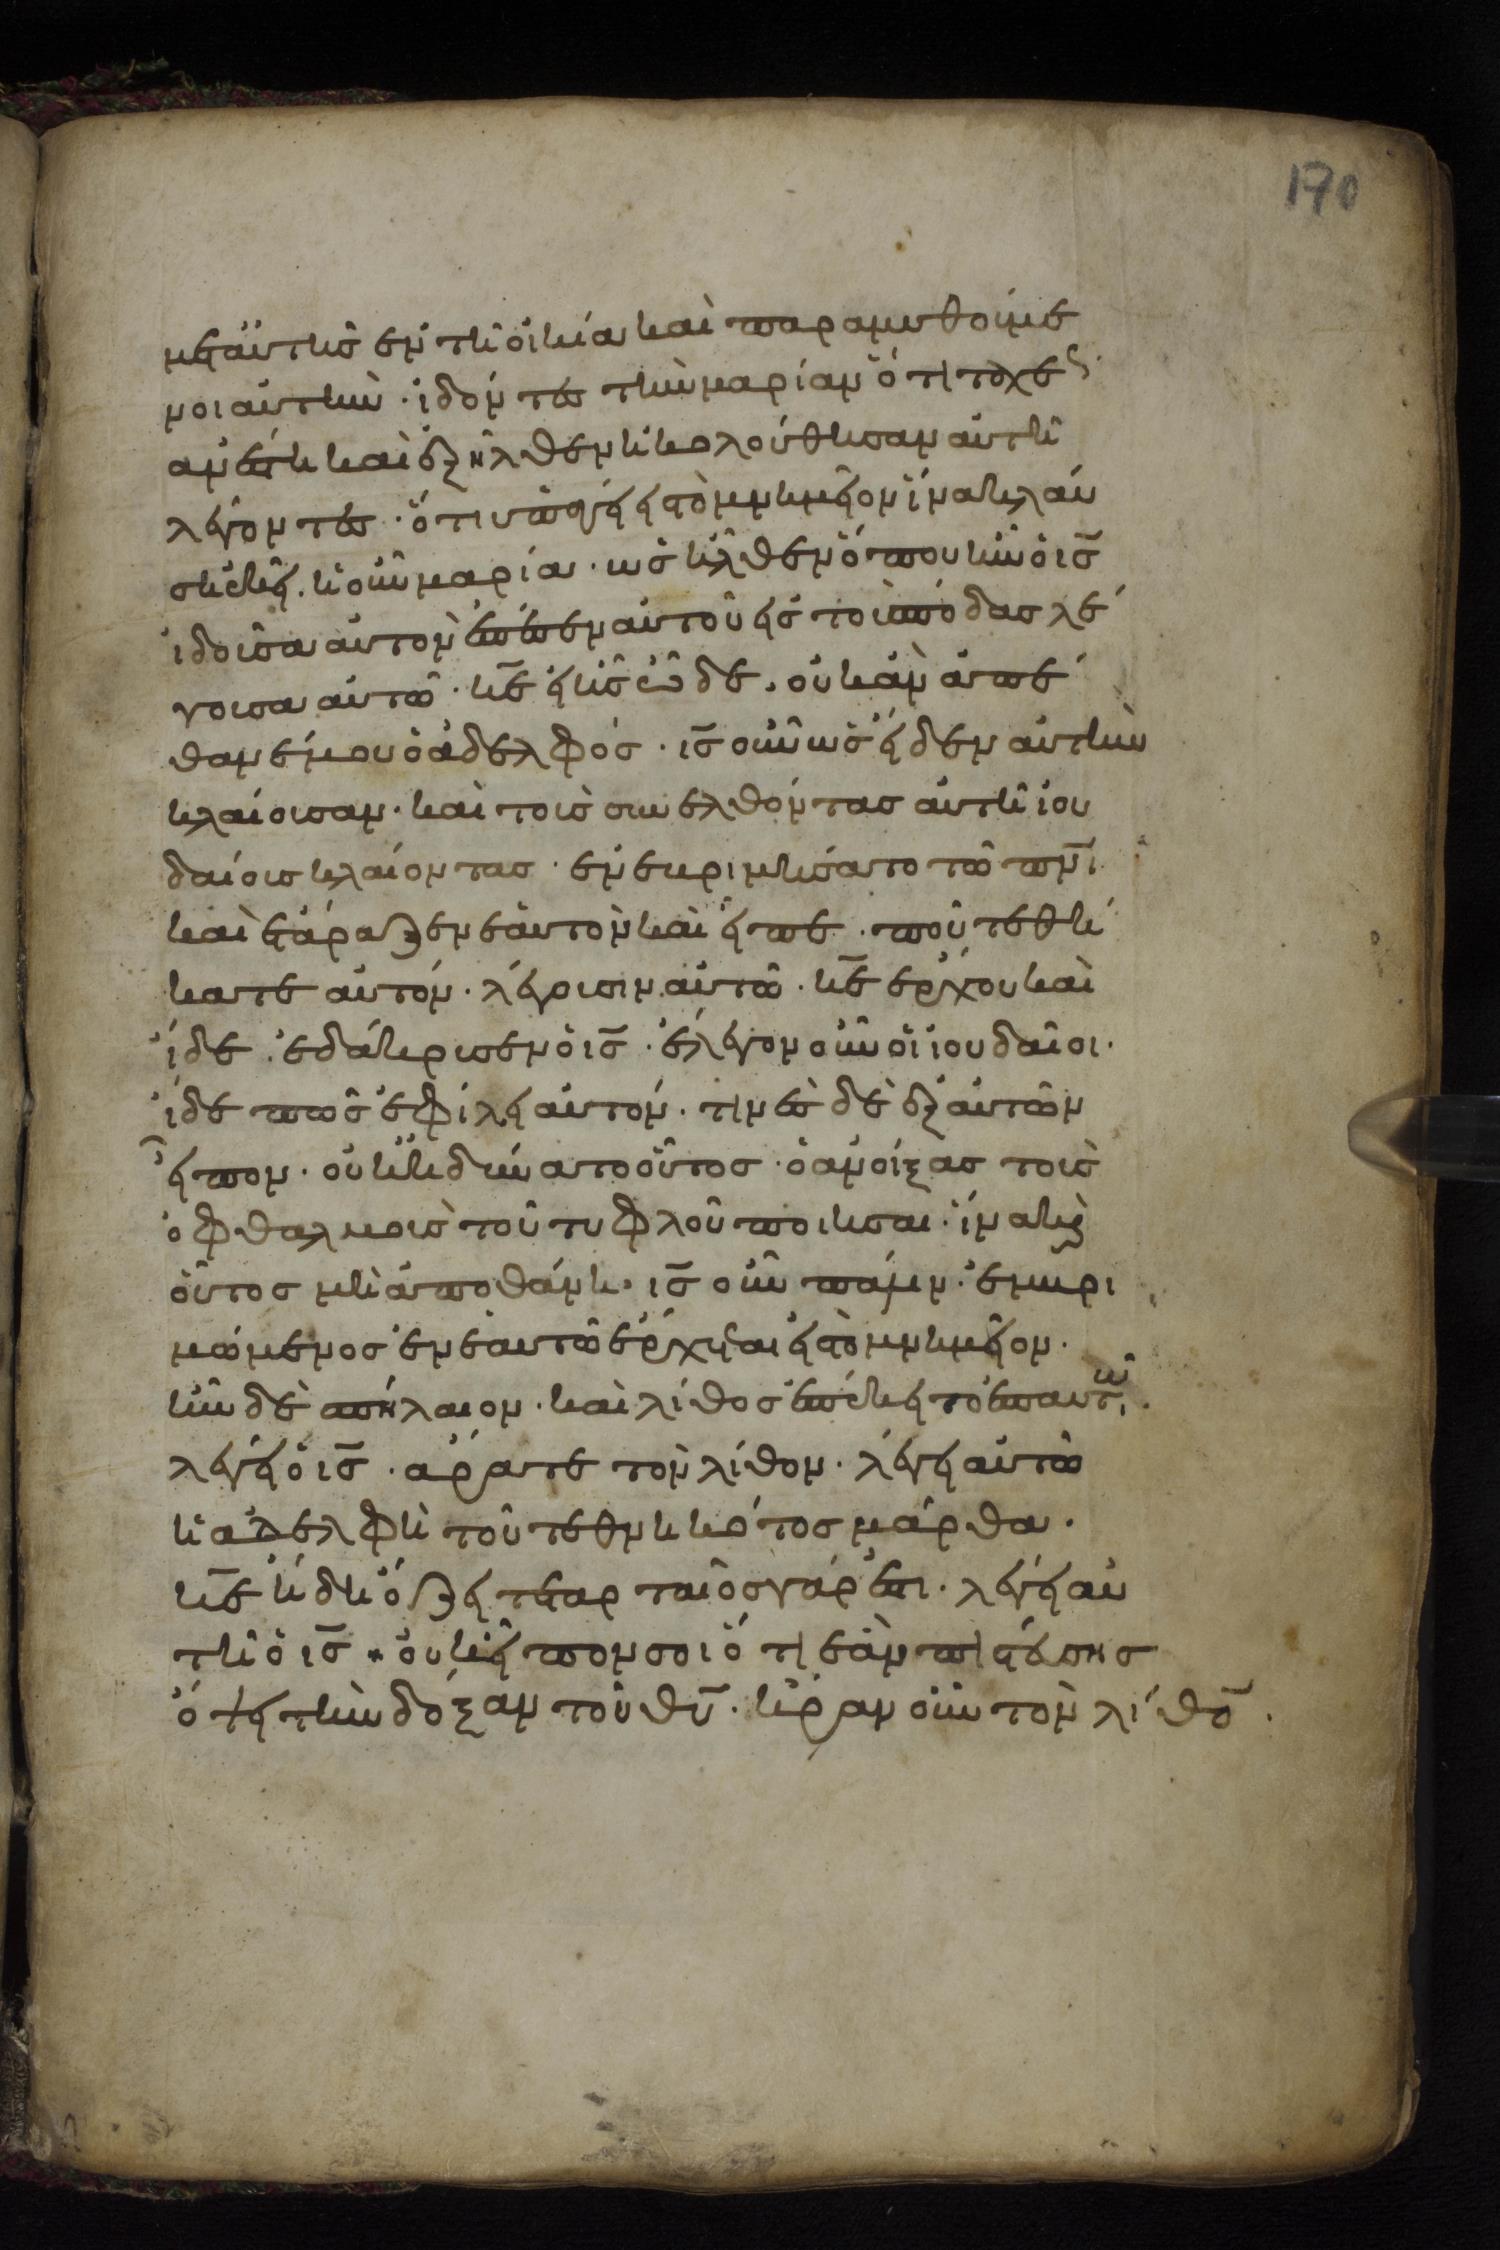 170
μετ αὐτῆς ἐν τῆ οἰκία καὶ παραμυθούμε
νοι αὐτὴν· ἰδόντες τὴν μαρίαν ὅτι ταχέως
ἀνέστη καὶ ἐξῆλθεν ἠκολούθησαν αὐτῆ
λέγοντες· ὅτι ὑπάγει εἰς τὸ μνημεῖον ἵνα κλαύ
ση ἐκεῖ. ἡ οὖν μαρία· ὡς ἦλθεν ὅπου ἦν ὁ ις
ἰδοῦσα αὐτὸν ἔπεσεν αὐτοῦ εἰς τοὺς πόδας λέ
γουσα αὐτῶ· κε εἰ ἦς ὧδε. οὐκ ἂν ἀπέ
θανέ μου ὁ ἀδελφός· ις οὖν ὡς εἶδεν αὐτὴν
κλαίουσαν· καὶ τοὺς συνελθόντας αὐτῆ ἰου
δαίους κλαίοντας· ἐνεβριμήσατο τῶ πνι
καὶ ἐτάραξεν ἑαυτὸν καὶ εἶπε· ποῦ τεθεί
κατε αὐτόν· λέγουσιν αὐτῶ· κε ἔρχου καὶ
ἴδε· ἐδάκρυσεν ὁ ις· ἔλεγον οὖν οἱ ἰουδαῖοι·
ἴδε πῶς ἐφίλει αὐτόν· τινὲς δὲ ἐξ αὐτῶν
εἶπον· οὐκ ἠδύνατο οὗτος· ὁ ἀνοίξας τοὺς
ὀφθαλμοὺς τοῦ τυφλοῦ ποιῆσαι· ἵνα καὶ
οὗτος μὴ ἀποθάνη· ις οὖν πάλιν· ἐμβρι
μώμενος ἐν ἑαυτῶ ἔρχεται εἰς τὸ μνημεῖον·
ἦν δὲ σπήλαιον· καὶ λίθος ἐπέκειτο ἐπ αυτῶ.
λέγει ὁ ις· ἄρατε τὸν λίθον· λέγει αὐτῶ
ἡ ἀδελφὴ τοῦ τεθνηκότος μάρθα·
κε ἤδη ὄζει τεταρταῖος γάρ ἐστι· λέγει αὐ
τῆ ὁ ις· οὐκ εἶπον σοι ὅτι ἐὰν πιστεύσης
ὄψει τὴν δόξαν τοῦ θυ· ἦραν οὖν τὸν λίθο·